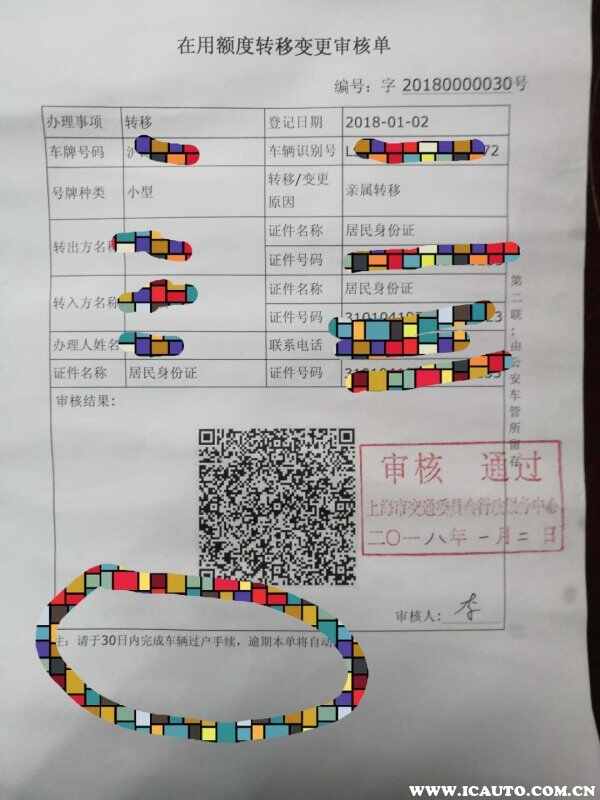 在用额度转移变更审核单
编号：字 20180000030号
办理事项 转移 登记日期 2018-01-02
车牌号码 车辆识别号 L 72
号牌种类 小型 转移/变更原因 亲属转移
转出方名称 证件名称 居民身份证
证件号码
转入方名称 证件名称 居民身份证
证件号码 3
办理人姓名 联系电话
证件名称 居民身份证 证件号码
审核结果：
第二联：由公安车管所留存
审核 通过
上海市交通委员会行政服务中心
二〇一八年一月二日
审核人：李
注：请于30日内完成车辆过户手续，逾期本单将自动
WWW.ICAUTO.COM.CN